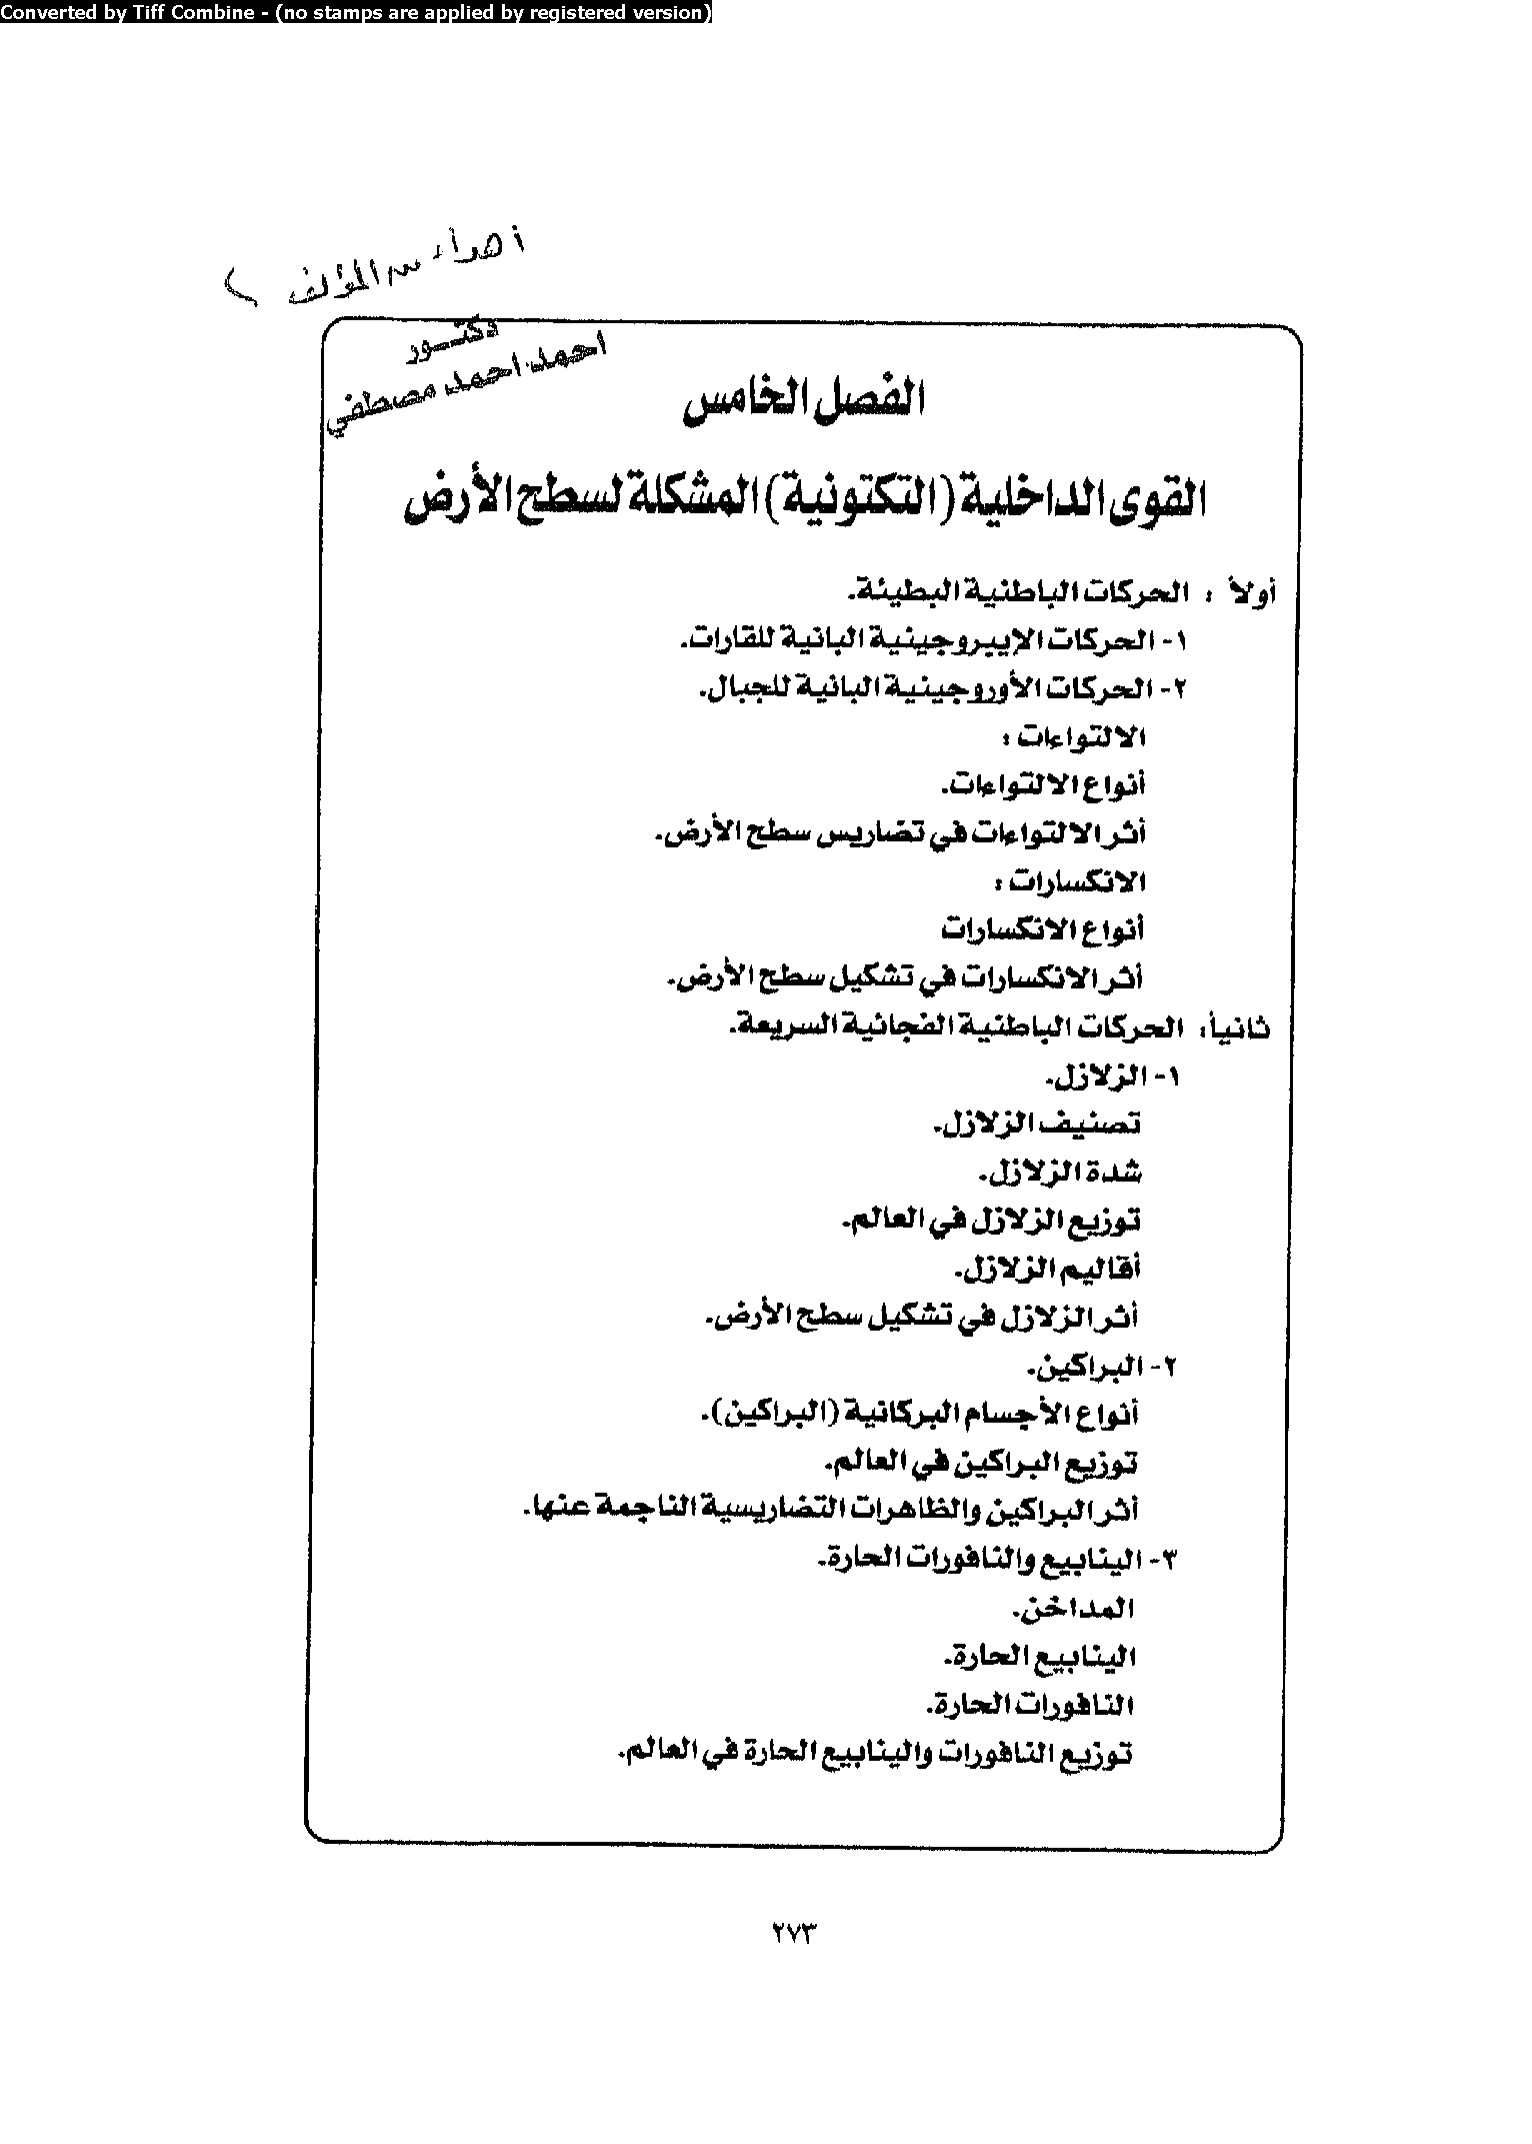 Converted by Tiff Combine - (no stamps are applied by registered version)
أهداء من المؤلف
دكتـــور
احمد احمد مصطفي
الفصل الخامس
القوى الداخلية (التكتونية) المشكلة لسطح الأرض
أولاً : الحركات الباطنية البطيئة.
١- الحركات الإيبروجينية البانية للقارات.
٢- الحركات الأوروجينية البانية للجبال.
الالتواءات :
أنواع الالتواءات.
أثر الالتواءات في تضاريس سطح الأرض.
الانكسارات :
أنواع الانكسارات
أثر الانكسارات في تشكيل سطح الأرض.
ثانياً: الحركات الباطنية الفجائية السريعة.
١- الزلازل.
تصنيف الزلازل.
شدة الزلازل.
توزيع الزلازل في العالم.
أقاليم الزلازل.
أثر الزلازل في تشكيل سطح الأرض.
٢- البراكين.
أنواع الأجسام البركانية (البراكين).
توزيع البراكين في العالم.
أثر البراكين والظاهرات التضاريسية الناجمة عنها.
٣- الينابيع والنافورات الحارة.
المداخن.
الينابيع الحارة.
النافورات الحارة.
توزيع النافورات والينابيع الحارة في العالم.
٢٧٣